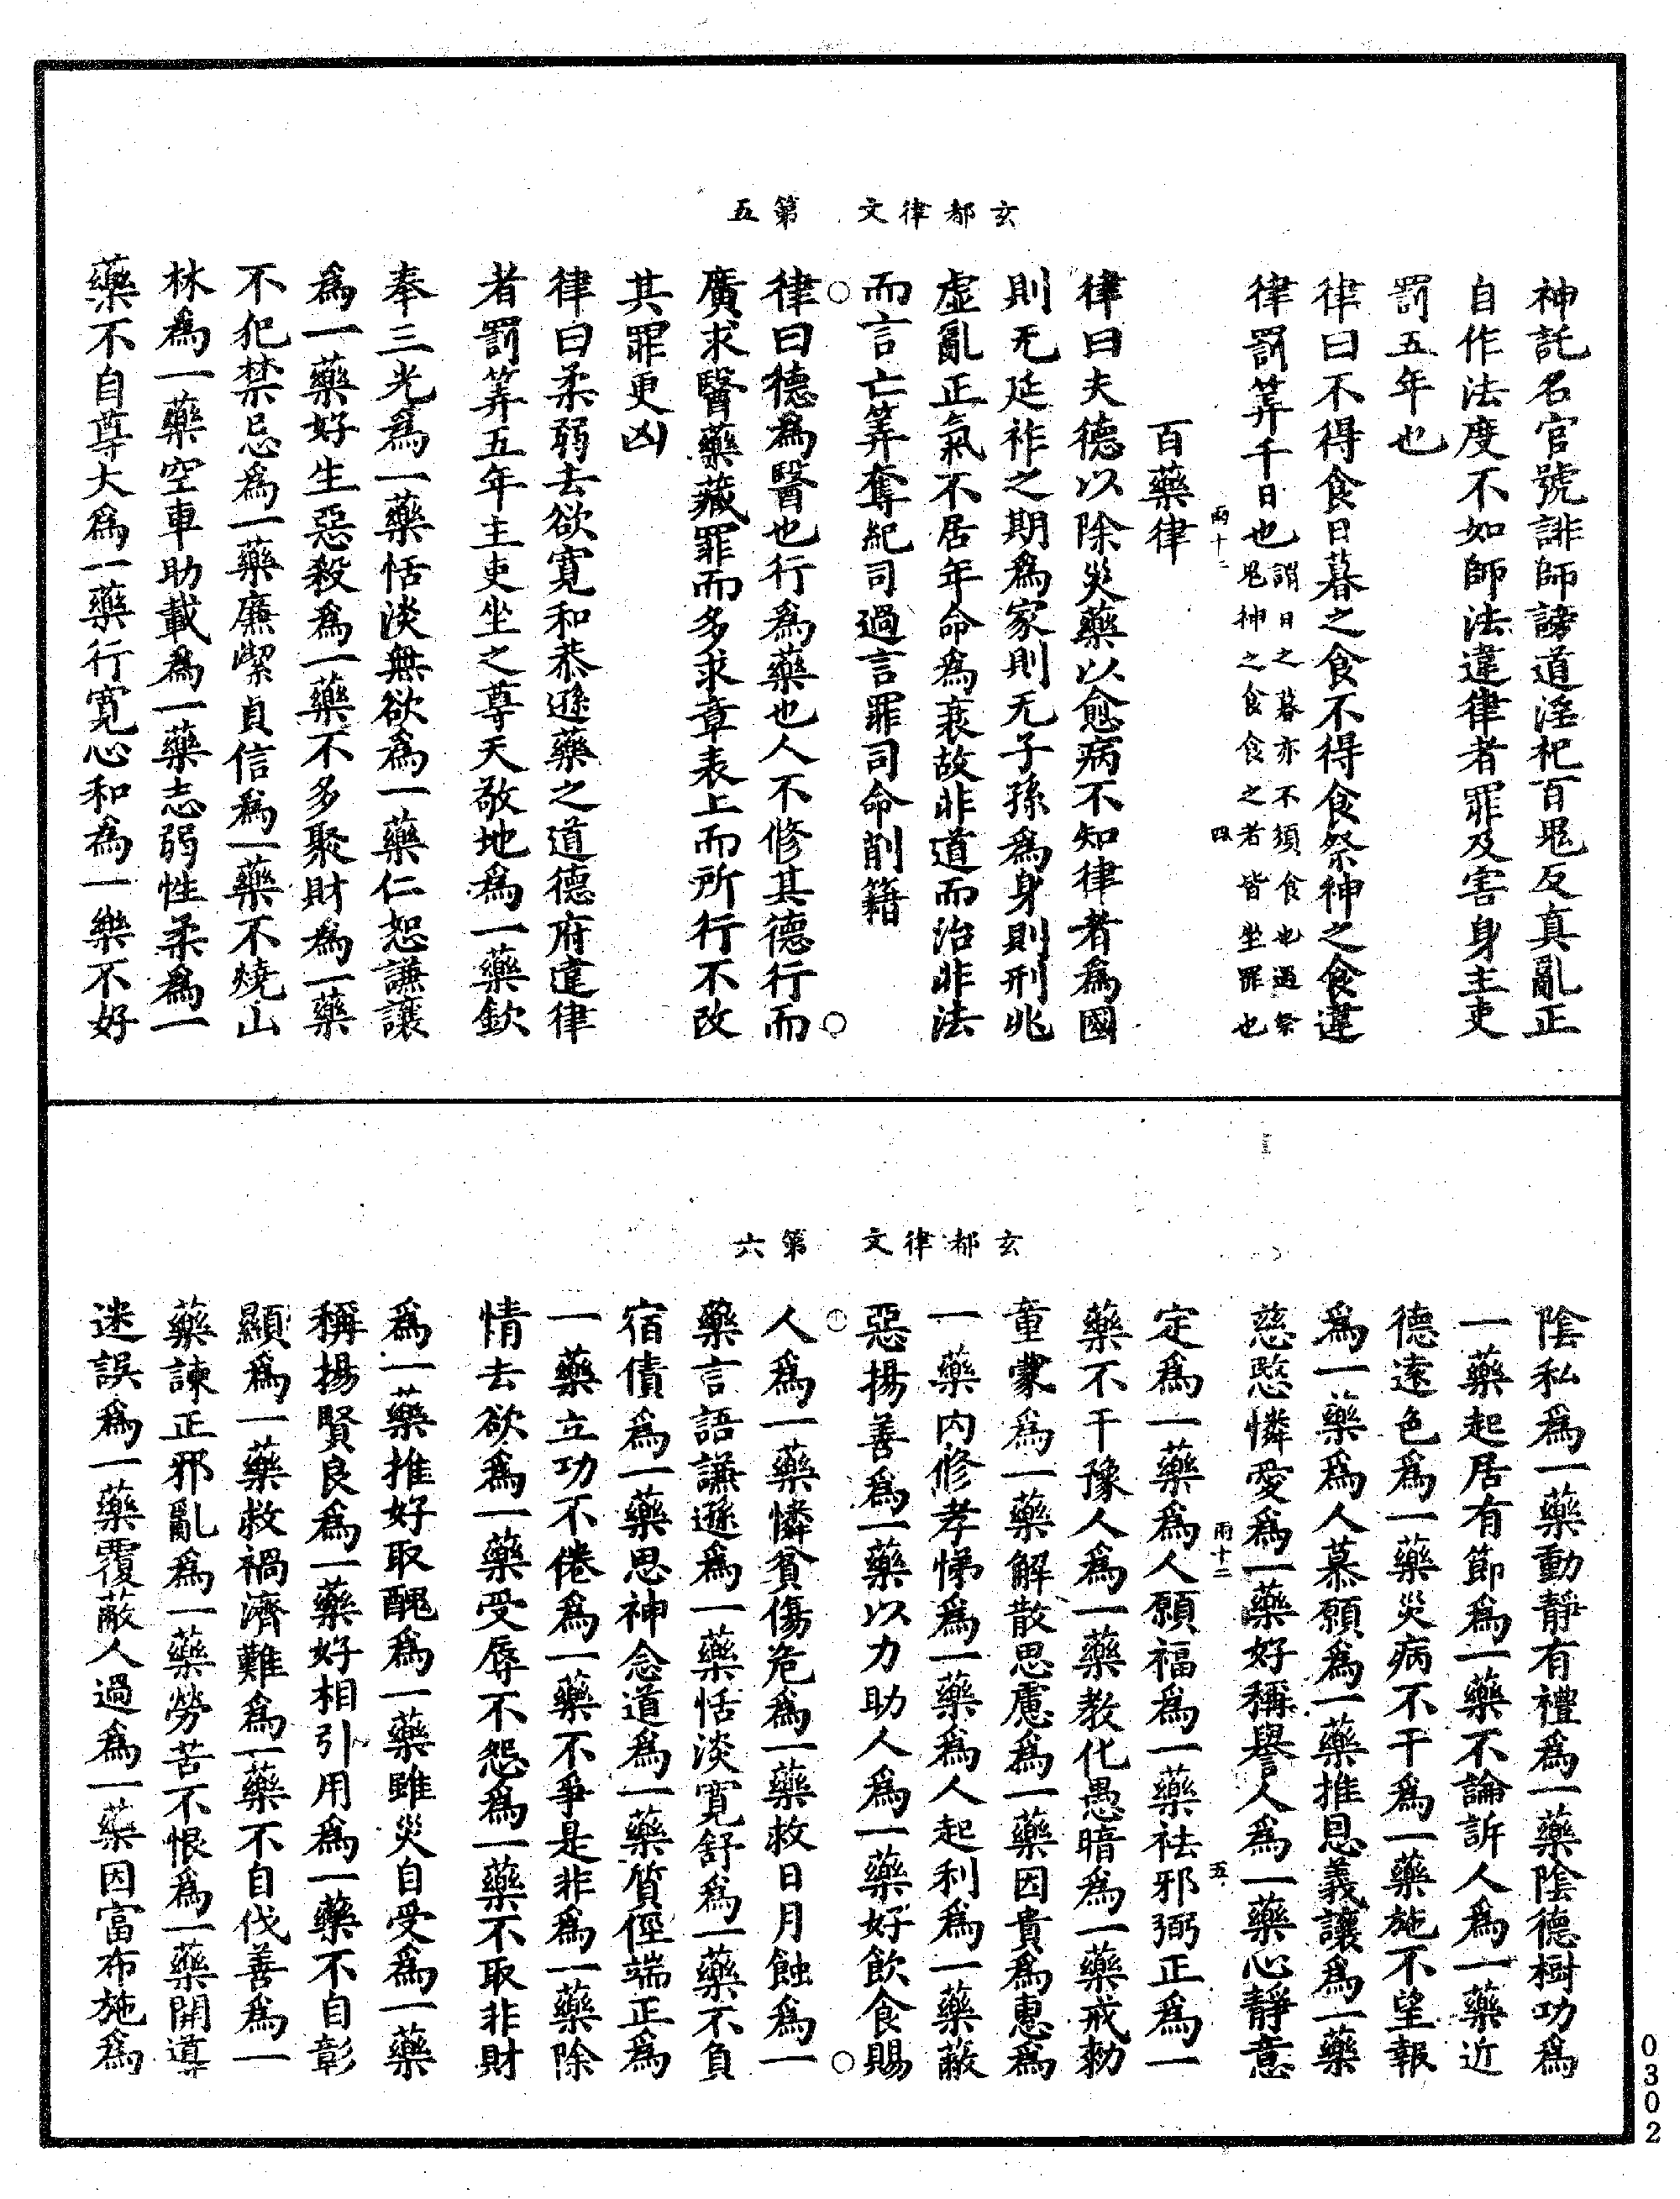 玄都律文　第五
神託名官號誹師謗道淫祀百鬼反真亂正
自作法度不如師法違律者罪及害身主吏
罰五年也
律曰不得食日暮之食不得食祭神之食違
律罰筭千日也謂日之暮亦不須食也過祭鬼神之食食之者皆坐罪也
雨十二　四
百藥律
律曰夫德以除災藥以愈病不知律者為國
則无延祚之期為家則无子孫為身則刑兆
虛亂正氣不居年命為衰故非道而治非法
而言亡筭奪紀司過言罪司命削籍
律曰德為醫也行為藥也人不修其德行而
廣求醫藥藏罪而多求章表上而所行不改
其罪更凶
律曰柔弱去欲寬和恭遜藥之道德府違律
者罰筭五年主吏坐之尊天敬地為一藥欽
奉三光為一藥恬淡無欲為一藥仁恕謙讓
為一藥好生惡殺為一藥不多聚財為一藥
不犯禁忌為一藥廉潔貞信為一藥不燒山
林為一藥空車助載為一藥志弱性柔為一
藥不自尊大為一藥行寬心和為一藥不好
玄都律文　第六
陰私為一藥動靜有禮為一藥陰德樹功為
一藥起居有節為一藥不論訴人為一藥近
德遠色為一藥災病不干為一藥施不望報
為一藥為人慕願為一藥推恩義讓為一藥
慈愍憐愛為一藥好稱譽人為一藥心靜意
雨十二　五
定為一藥為人願福為一藥祛邪弼正為一
藥不干豫人為一藥教化愚暗為一藥戒勑
童蒙為一藥解散思慮為一藥因貴為惠為
一藥內修孝悌為一藥為人起利為一藥蔽
惡揚善為一藥以力助人為一藥好飲食賜
人為一藥憐貧傷危為一藥救日月蝕為一
藥言語謙遜為一藥恬淡寬舒為一藥不負
宿債為一藥思神念道為一藥質俓端正為
一藥立功不倦為一藥不爭是非為一藥除
情去欲為一藥受辱不怨為一藥不取非財
為一藥推好取醜為一藥雖災自受為一藥
稱揚賢良為一藥好相引用為一藥不自彰
顯為一藥救禍濟難為一藥不自伐善為一
藥諫正邪亂為一藥勞苦不恨為一藥開導
迷誤為一藥覆蔽人過為一藥因富布施為
0302